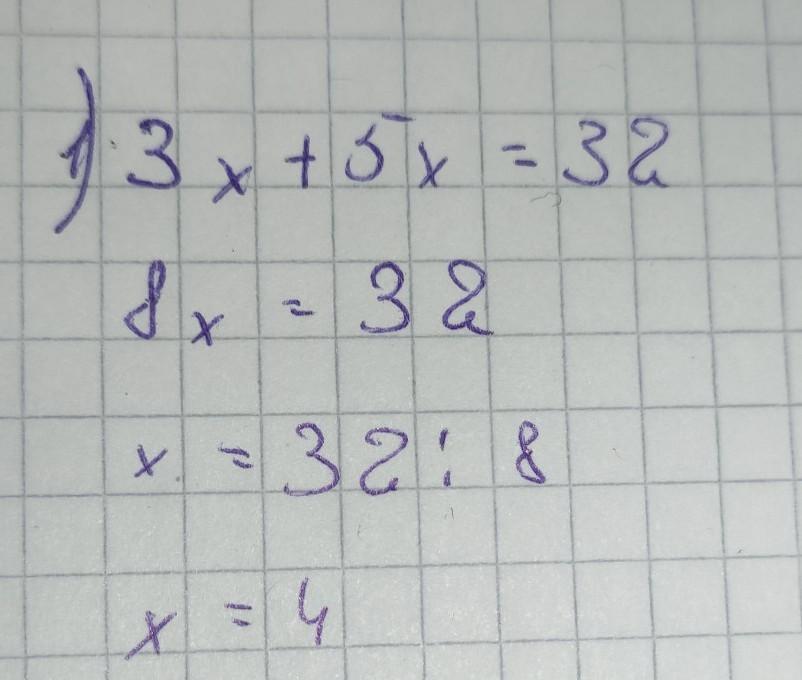 1) 3x + 5x = 32
8x = 32
x = 32 : 8
x = 4